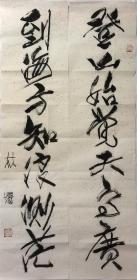 登山始觉天高廣
到海方知浪渺茫